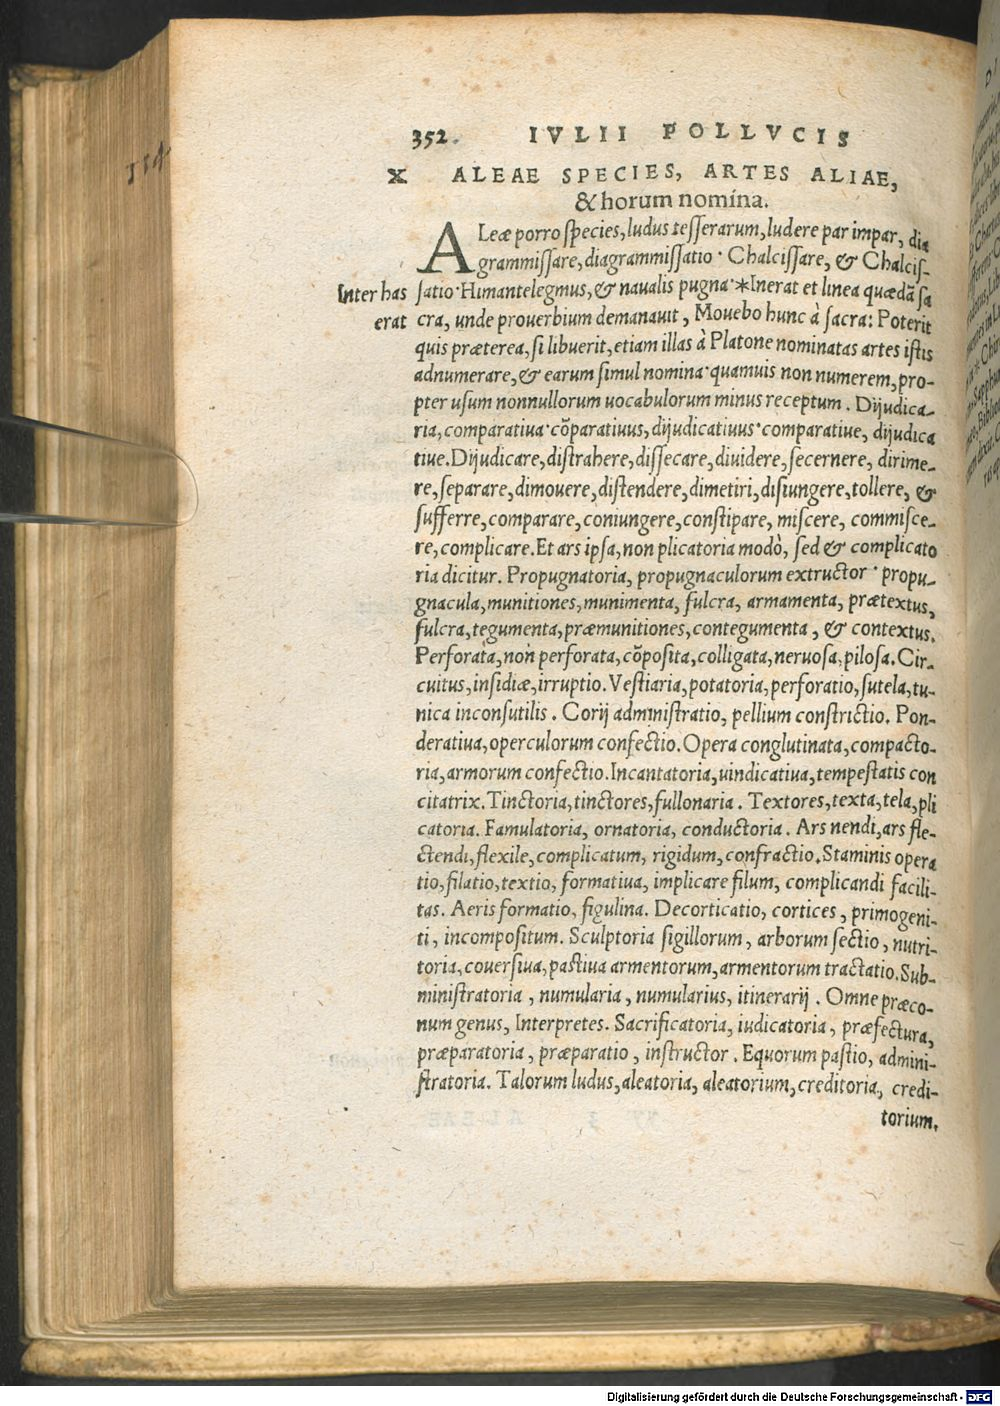 352. IVLII POLLVCIS
X ALEAE SPECIES, ARTES ALIAE,
& horum nomina.
ALeæ porro species, ludus tesserarum, ludere par impar, dia
grammissare, diagrammissatio · Chalcissare, & Chalcis-
Inter has
erat
satio· Himantelegmus, & naualis pugna·*Inerat et linea quædã sa
cra, unde prouerbium demanauit, Mouebo hunc à sacra: Poterit
quis præterea, si libuerit, etiam illas à Platone nominatas artes istis
adnumerare, & earum simul nomina· quamuis non numerem, pro-
pter usum nonnullorum uocabulorum minus receptum. Dijudica-
ria, comparatiua· cõparatiuus, dijudicatiuus· comparatiue, dijudica
tiue. Dijudicare, distrahere, dissecare, diuidere, secernere, dirime-
re, separare, dimouere, distendere, dimetiri, disiungere, tollere, &
sufferre, comparare, coniungere, constipare, miscere, commisce-
re, complicare. Et ars ipsa, non plicatoria modò, sed & complicato
ria dicitur. Propugnatoria, propugnaculorum extructor · propu-
gnacula, munitiones, munimenta, fulcra, armamenta, prætextus,
fulcra, tegumenta, præmunitiones, contegumenta, & contextus.
Perforata, non perforata, cõposita, colligata, neruosa, pilosa. Cir-
cuitus, insidiæ, irruptio. Vestiaria, potatoria, perforatio, sutela, tu-
nica inconsutilis. Corij administratio, pellium constrictio. Pon-
deratiua, operculorum confectio. Opera conglutinata, compacto-
ria, armorum confectio. Incantatoria, uindicatiua, tempestatis con
citatrix. Tinctoria, tinctores, fullonaria. Textores, texta, tela, pli
catoria. Famulatoria, ornatoria, conductoria. Ars nendi, ars fle-
ctendi, flexile, complicatum, rigidum, confractio. Staminis opera
tio, filatio, textio, formatiua, implicare filum, complicandi facili-
tas. Aeris formatio, figulina. Decorticatio, cortices, primogeni-
ti, incompositum. Sculptoria sigillorum, arborum sectio, nutri-
toria, couersiua, pastiua armentorum, armentorum tractatio. Sub-
ministratoria, numularia, numularius, itinerarij. Omne præco-
num genus, Interpretes. Sacrificatoria, iudicatoria, præfectura,
præparatoria, præparatio, instructor. Equorum pastio, admini-
stratoria. Talorum ludus, aleatoria, aleatorium, creditoria, credi-
torium.
Digitalisierung gefördert durch die Deutsche Forschungsgemeinschaft - DFG